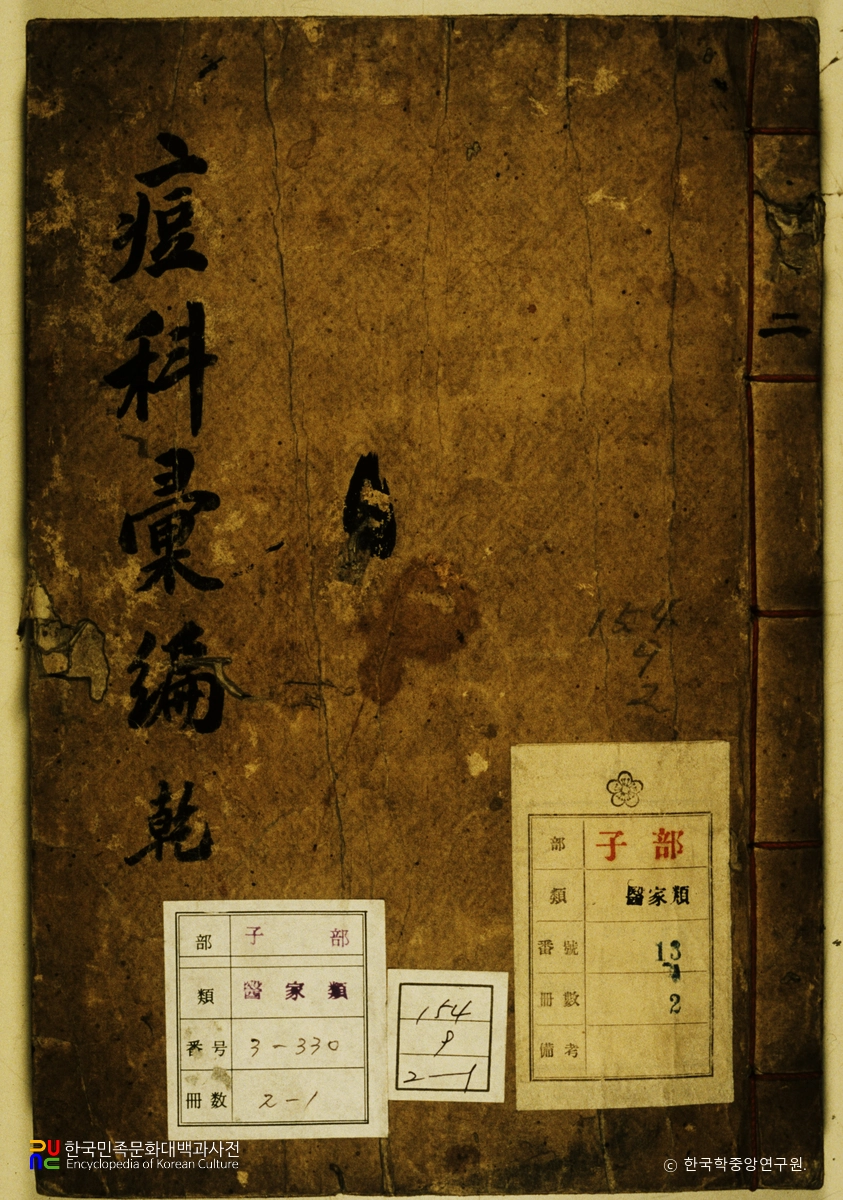 痘科彙編 乾
二
154
9
2
部 子部
類 醫家類
番號 13
冊數 2
備考
部 子部
類 醫家類
番号 3-330
冊数 2-1
154
9
2-1
한국민족문화대백과사전
Encyclopedia of Korean Culture
© 한국학중앙연구원